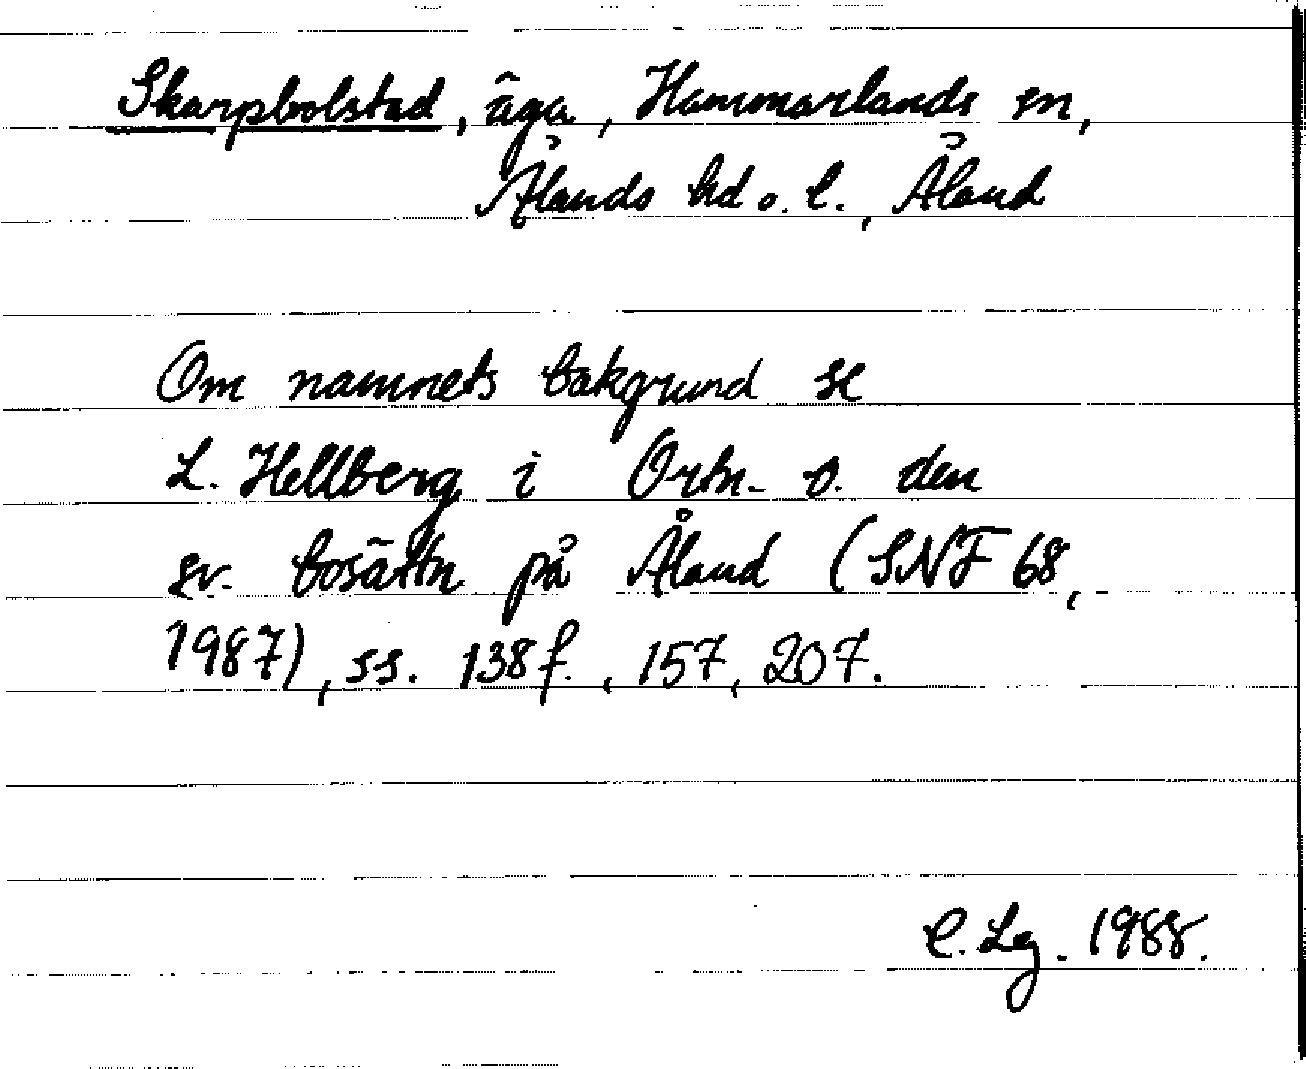 Skarpbolstad, äga, Hammarlands sn,
Ålands hd o. l., Åland
Om namnets bakgrund se
L. Hellberg i Ortn. o. den
sv. bosättn. på Åland (SNF 68,
1987), ss. 138f., 157, 207.
C. Lg. 1988.